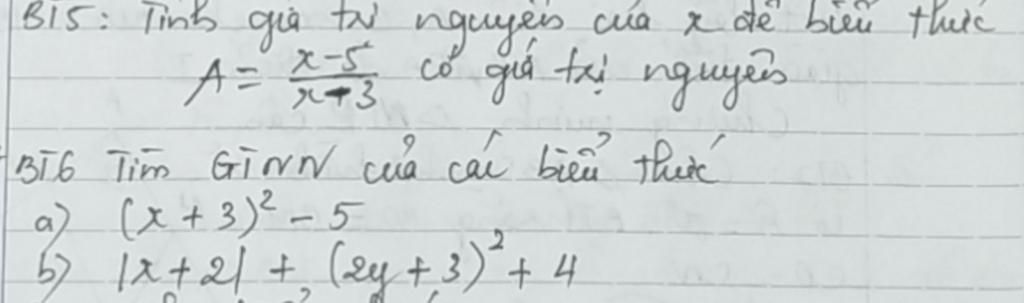 BT5: Tính giá trị nguyên của x để biểu thức
A = \frac{x-5}{x-3} có giá trị nguyên
BT6 Tìm GTNN của các biểu thức
a) (x + 3)² - 5
b) |x + 2| + (2y + 3)² + 4